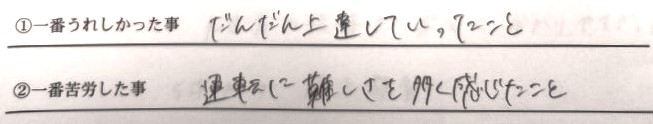 ①一番うれしかった事 だんだん上達していったこと
②一番苦労した事 運転に難しさを多く感じたこと